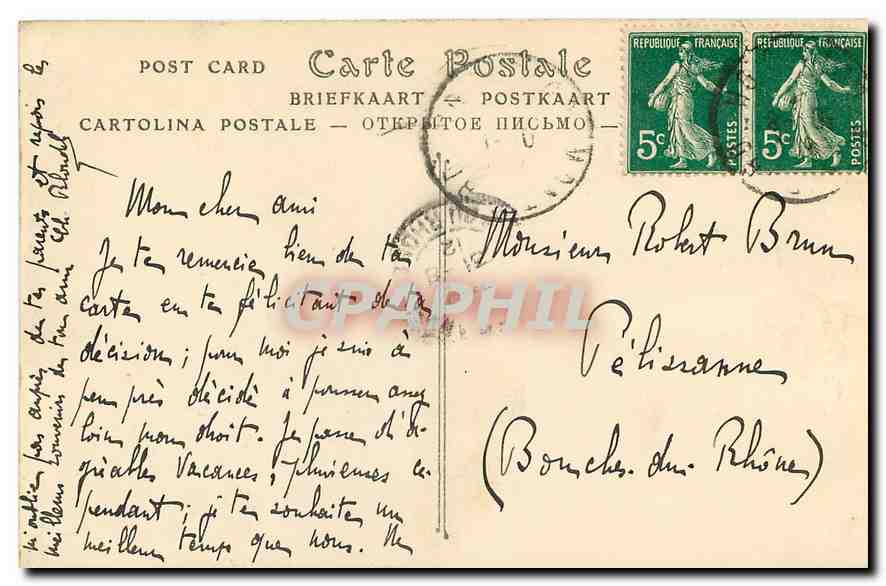 POST CARD Carte Postale
BRIEFKAART — POSTKAART
CARTOLINA POSTALE — ОТКРЫТОЕ ПИСЬМО —
REPUBLIQUE FRANÇAISE
5c
POSTES
REPUBLIQUE FRANÇAISE
5c
POSTES
Mon cher ami
Je te remercie bien de ta
carte en te félicitant de ta
décision ; pour moi je suis à
peu près décidé à pousser assez
loin mon droit. Je passe d'a-
gréables vacances, pluvieuses ce-
pendant ; je te souhaite un
meilleur temps que nous. Ne
m'oublie pas auprès de tes parents et reçois les
meilleurs souvenirs de ton ami Ch.
Monsieur Robert Brun
Pélissanne
(Bouches-du-Rhône)
CPAPHIL